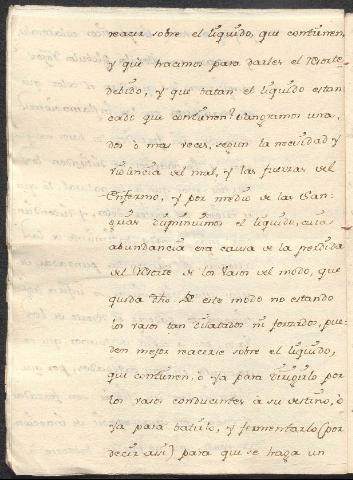 reacir sobre el liquido, que contienen,
y què hacimos para darles el Resorte
debido, y que batan el liquido estan-
cado que contienen? Sangramos una,
dos ò mas veces, segun la necesidad y
violencia del mal, y las fuerzas del
Enfermo, y por medio de las San-
grias disminuimos el liquido, cuia
abundancia era causa de la perdida
del Resorte de los Vasos del modo, que
queda dho. De este modo no estando
los vasos tan dilatados ni forzados, pue-
den mejor reacirse sobre el liquido,
que contienen, ò ya para dirigirlo por
los vasos conducentes à su destino, ò
ya para batirlo, y fermentarlo (por
decir asi) para que se haga un